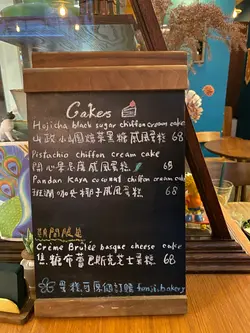 Cakes
Hojicha black sugar chiffon cream cake
山政小山園焙茶黑糖戚風蛋糕 68
Pistachio chiffon cream cake
開心果忌廉戚風蛋糕 68
Pandan Kaya coconut chiffon cream cake
班瀾咖央椰子戚風蛋糕 68
期間限定
Crème Brûlée basque cheese cake
焦糖布蕾巴斯克芝士蛋糕 68
蛋糕可原個訂購 kunji.bakery